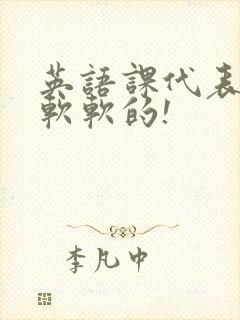 英語課代表
軟軟的!
李凡中